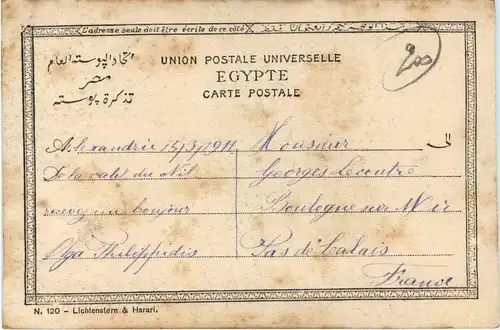 L'adresse seule doit être écrite de ce côté
اتحاد البوسته العام
مصر
تذكرة بوسته
UNION POSTALE UNIVERSELLE
EGYPTE
CARTE POSTALE
200
Alexandrie 15/3/1911
De la vallée du Nil
recevez un bonjour
Olga Philippidis
الى
Monsieur
Georges Lecontre
Boulogne sur Mer
Pas de Calais
France
N. 120 – Lichtenstern & Harari.